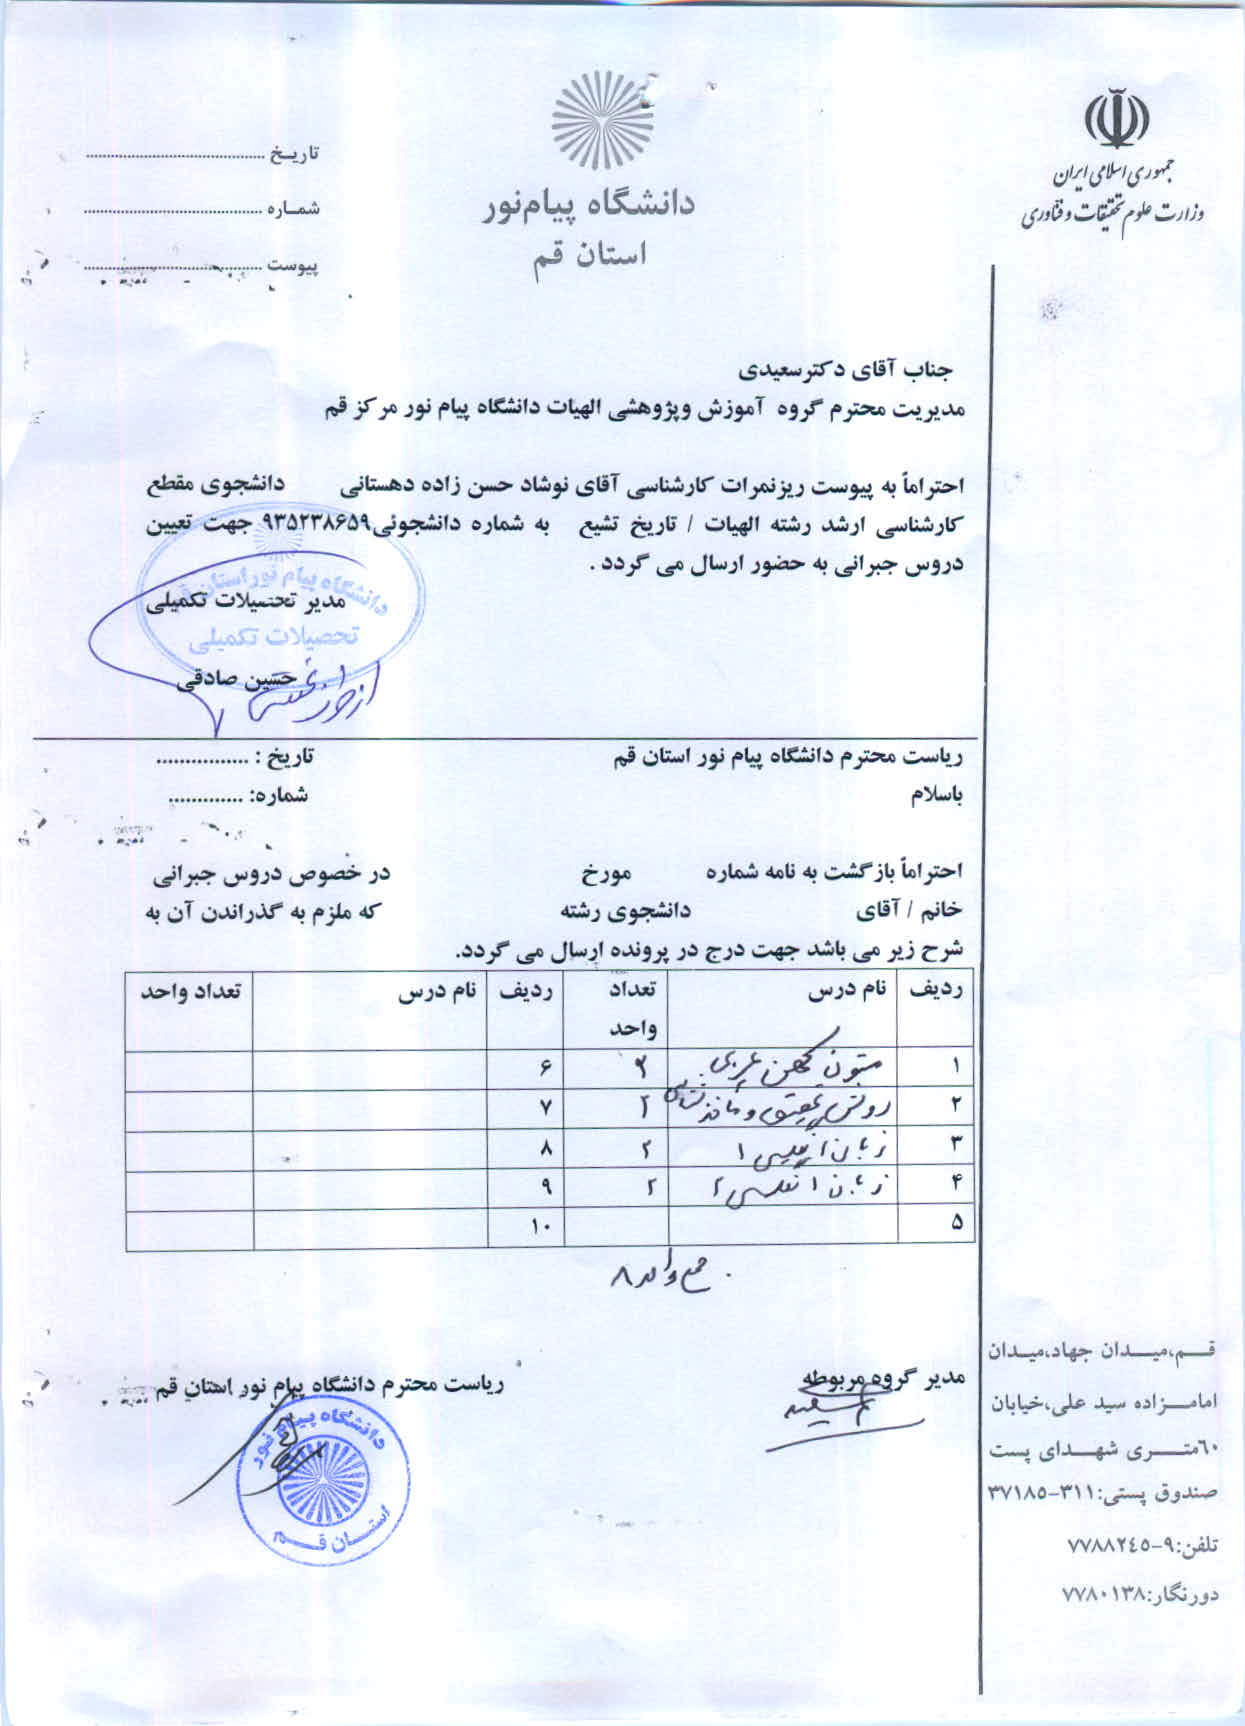 جمهوری اسلامی ایران
وزارت علوم تحقیقات و فناوری
دانشگاه پیام‌نور
استان قم
تاریخ ........................................
شماره ........................................
پیوست ........................................
جناب آقای دکترسعیدی
مدیریت محترم گروه آموزش وپژوهشی الهیات دانشگاه پیام نور مرکز قم
احتراماً به پیوست ریزنمرات کارشناسی آقای نوشاد حسن زاده دهستانی دانشجوی مقطع
کارشناسی ارشد رشته الهیات / تاریخ تشیع به شماره دانشجوئی۹۳۵۲۳۸۶۵۹ جهت تعیین
دروس جبرانی به حضور ارسال می گردد .
دانشگاه پیام نور استان قم
مدیر تحصیلات تکمیلی
تحصیلات تکمیلی
حسین صادقی
ریاست محترم دانشگاه پیام نور استان قم تاریخ : ................
باسلام شماره: .............
احتراماً بازگشت به نامه شماره مورخ در خصوص دروس جبرانی
خانم / آقای دانشجوی رشته که ملزم به گذراندن آن به
شرح زیر می باشد جهت درج در پرونده ارسال می گردد.
ردیف نام درس تعداد واحد ردیف نام درس تعداد واحد
۱ متون کهن عربی ۲ ۶
۲ روش تحقیق و ماخذ شناسی ۲ ۷
۳ زبان انگلیسی ۱ ۲ ۸
۴ زبان انگلیسی ۲ ۲ ۹
۵ ۱۰
جمع واحد ۸
مدیر گروه مربوطه ریاست محترم دانشگاه پیام نور استان قم
دانشگاه پیام نور
استان قم
قم،میدان جهاد،میدان
امامزاده سید علی،خیابان
۶۰متری شهدای پست
صندوق پستی:۳۱۱-۳۷۱۸۵
تلفن:۹-۷۷۸۸۲۴۵
دورنگار:۷۷۸۰۱۳۸